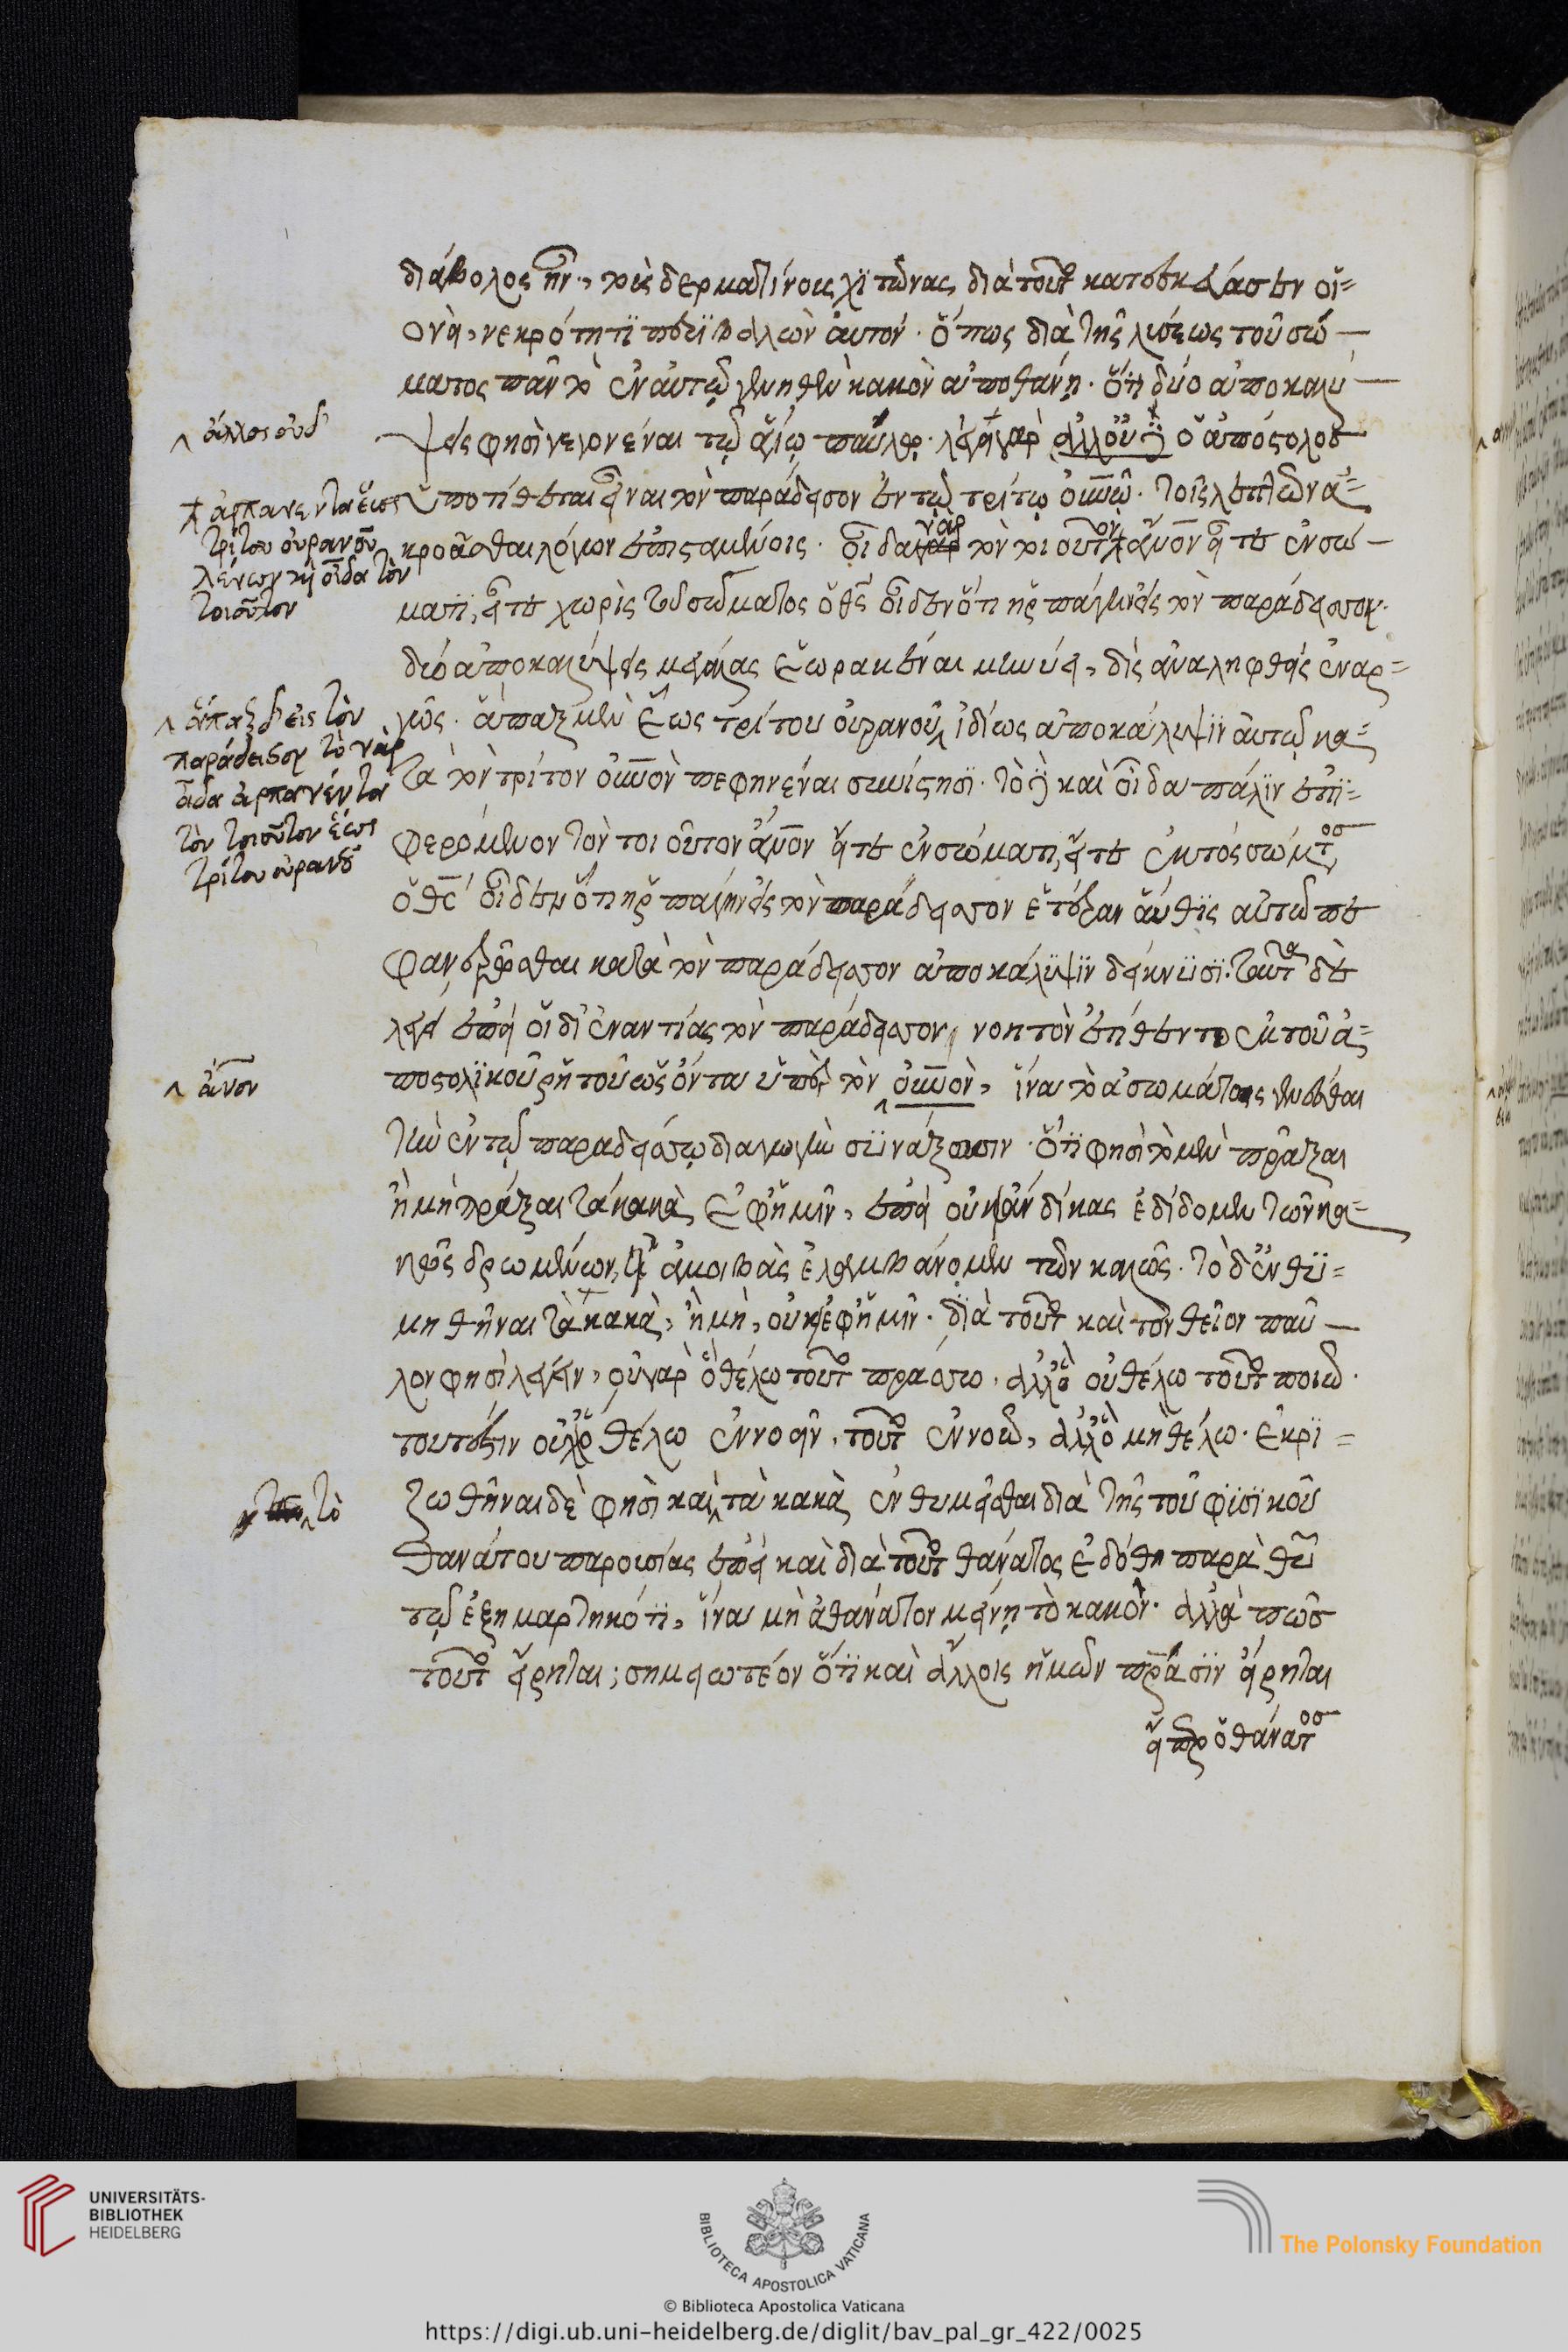 διάβολος ἦν, τοὺς δερματίνους χιτῶνας διὰ τοῦτο κατεσκεύασεν οἱ=
ονεὶ, νεκρότητι περιβαλὼν αὐτόν. ὅπως διὰ τῆς λύσεως τοῦ σώ—
ματος πᾶν τὸ ἐν αὐτῷ γεννηθὲν κακὸν ἀποθάνῃ. ὅτι δύο ἀποκαλύ—
^ ἄλλος οὐδ
ψεις φησὶ γεγονέναι τῷ ἁγίῳ παύλῳ. λέγει γὰρ ὁ ἀπόστολος
ὑποτίθεται εἶναι τὸν παράδεισον ἐν τῷ τρίτῳ οὐνῷ. τοῖς λεπτῶν ἀ=
ἁρπαγέντα ἕως
τρίτου οὐρανοῦ
λέγων καὶ οἶδα τὸν
τοιοῦτον
κροᾶσθαι λόγων ἐπισταμένοις. οἶδα γὰρ τὸν τοιοῦτον ἄνον εἴτε ἐν σώ—
ματι, εἴτε χωρὶς τοῦ σώματος ὁ θς οἶδεν ὅτι ἡρπάγη εἰς τὸν παράδεισον.
δύο ἀποκαλύψεις μεγάλας ἑωρακέναι μηνύει, δὶς ἀναληφθεὶς ἐναρ=
^ ἅπαξ δ' εἰς τὸν
παράδεισον τὸ γὰρ
οἶδα ἁρπαγέντα
τὸν τοιοῦτον ἕως
τρίτου οὐρανοῦ
γῶς. ἅπαξ μὲν ἕως τρίτου οὐρανοῦ ἰδίως ἀποκάλυψιν αὐτῷ κα=
τὰ τὸν τρίτον οὐνὸν πεφηνέναι συνίστησι. τὸ δὲ καὶ οἶδα πάλιν ἐπι=
φερόμενον τὸν τοιοῦτον ἄνον εἴτε ἐν σώματι, εἴτε ἐκτὸς σώματος
ὁ θς οἶδεν ὅτι ἡρπάγη εἰς τὸν παράδεισον ἑτέραν αὖθις αὐτῷ πε
φανερῶσθαι κατὰ τὸν παράδεισον ἀποκάλυψιν δείκνυσι. ταῦτα δὲ
λέγει ἐπεὶ οἱ δι' ἐναντίας τὸν παράδεισον νοητὸν ἐτίθεντο ἐκ τοῦ ἀ=
^ ἄνον
ποστολικοῦ ῥητοῦ ὡς ὄντα ὑπὲρ τὸν οὐνὸν, ἵνα τὸ ἀσωμάτους γενέσθαι
τὴν ἐν τῷ παραδείσῳ διαγωγὴν συνάξωσιν. ὅτι φησὶ τὸ μὲν πρᾶξαι
ἢ μὴ πρᾶξαι τὰ κακὰ ἐφ' ἡμῖν, ἐπεὶ οὐκ ἂν δίκας ἐδίδομεν τῶν κα=
κῶς δρωμένων, ἢ ἀμοιβὰς ἐλαμβάνομεν τῶν καλῶς. τὸ δ' ἐνθυ=
μηθῆναι τὰ κακὰ, ἢ μὴ, οὐκ ἐφ' ἡμῖν. διὰ τοῦτο καὶ τὸν θεῖον παῦ—
λον φησὶ λέγειν, οὐ γὰρ ὃ θέλω τοῦτο πράσσω, ἀλλ' ὃ οὐ θέλω τοῦτο ποιῶ.
τουτέστιν οὐχ ὃ θέλω ἐννοεῖν, τοῦτο ἐννοῶ, ἀλλ' ὃ μὴ θέλω. ἐκρι=
^ τὸ
ζωθῆναι δὲ φησὶ καὶ τὰ κακὰ ἐνθυμεῖσθαι διὰ τῆς τοῦ φυσικοῦ
θανάτου παρουσίας ἐπεὶ καὶ διὰ τοῦτο θάνατος ἐδόθη παρὰ θῦ
τῷ ἐξημαρτηκότι, ἵνα μὴ ἀθάνατον μείνῃ τὸ κακόν. ἀλλὰ πῶς
τοῦτο εἴρηται; σημειωτέον ὅτι καὶ ἄλλοις ἡμῶν πράσιν εἴρηται
εἴπερ ὁ θάνατος
UNIVERSITÄTS-
BIBLIOTHEK
HEIDELBERG
BIBLIOTECA APOSTOLICA VATICANA
The Polonsky Foundation
© Biblioteca Apostolica Vaticana
https://digi.ub.uni-heidelberg.de/diglit/bav_pal_gr_422/0025